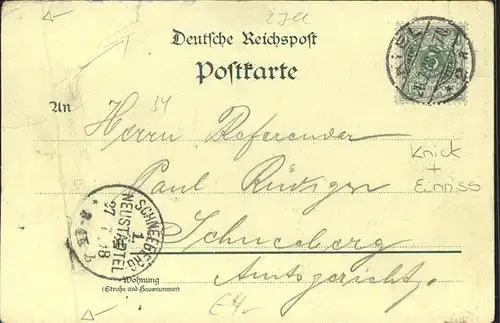 Deutsche Reichspost
Postkarte
KIEL
5
An
54
Herrn Referendar
Knick
+
Einriss
Paul Rüdiger
SCHNEEBERG
NEUSTÄDTEL
1.
27
98
Schneeberg
Amtsgericht
Wohnung
(Straße und Hausnummer)